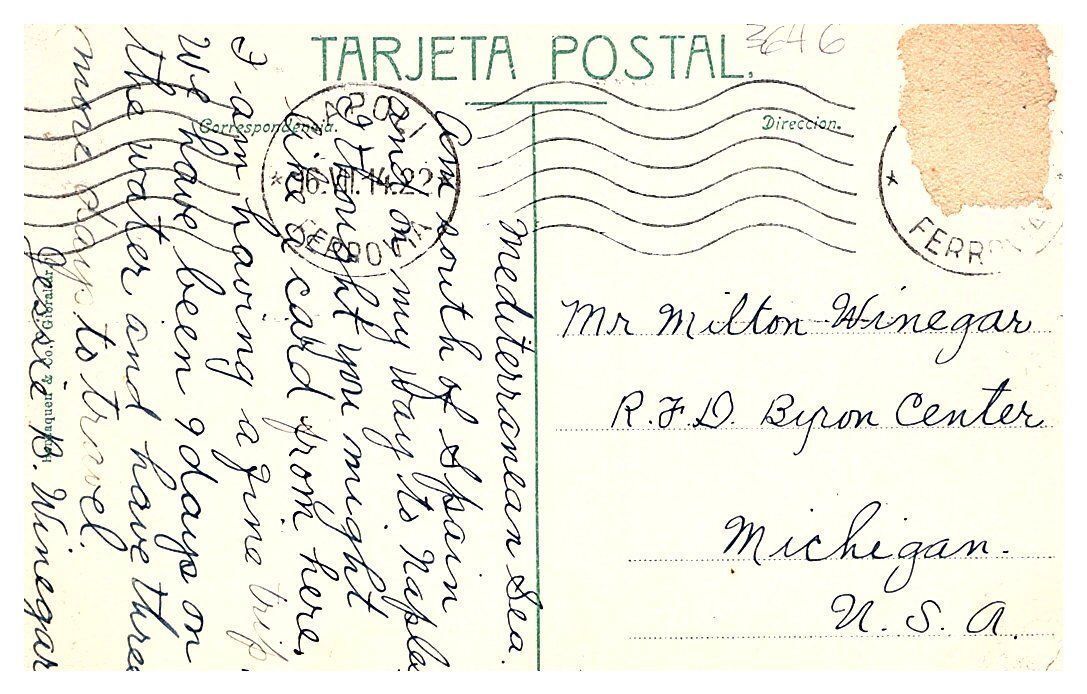 TARJETA POSTAL.
3646
Correspondencia.
Direccion.
16.VII.14.22
FERROVIA
FERROVIA
Mediterranean Sea.
Am south of Spain
and on my way to Naples
so thought you might
like a card from here.
I am having a fine trip
We have been 9 days on
the water and have three
more days to travel.
Jessie B. Winegar
& Co. Gibraltar
Mr Milton Winegar
R.F.D. Byron Center
Michigan.
U. S. A.